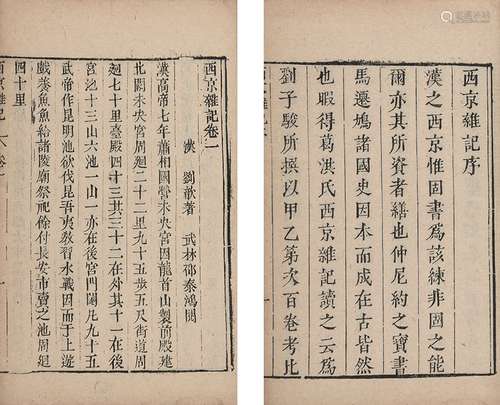 西京雜記序
漢之西京惟固書爲該練非固之能
爾亦其所資者繕也仲尼約之寶書
馬遷鳩諸國史因本而成在古皆然
也暇得葛洪氏西京雜記讀之云爲
劉子駿所撰以甲乙第次百卷考比
西京雜記卷一
漢 劉歆著 武林邵泰鴻閱
漢高帝七年蕭相國營未央宮因龍首山製前殿建
北闕未央宮周廻二十二里九十五步五尺街道周
廻七十里臺殿四十三其三十二在外其十一在後
宮池十三山六池一山一亦在後宮門闥凡九十五
武帝作昆明池欲伐昆吾夷教習水戰因而于上遊
戲養魚魚給諸陵廟祭祀餘付長安市賣之池周廻
四十里